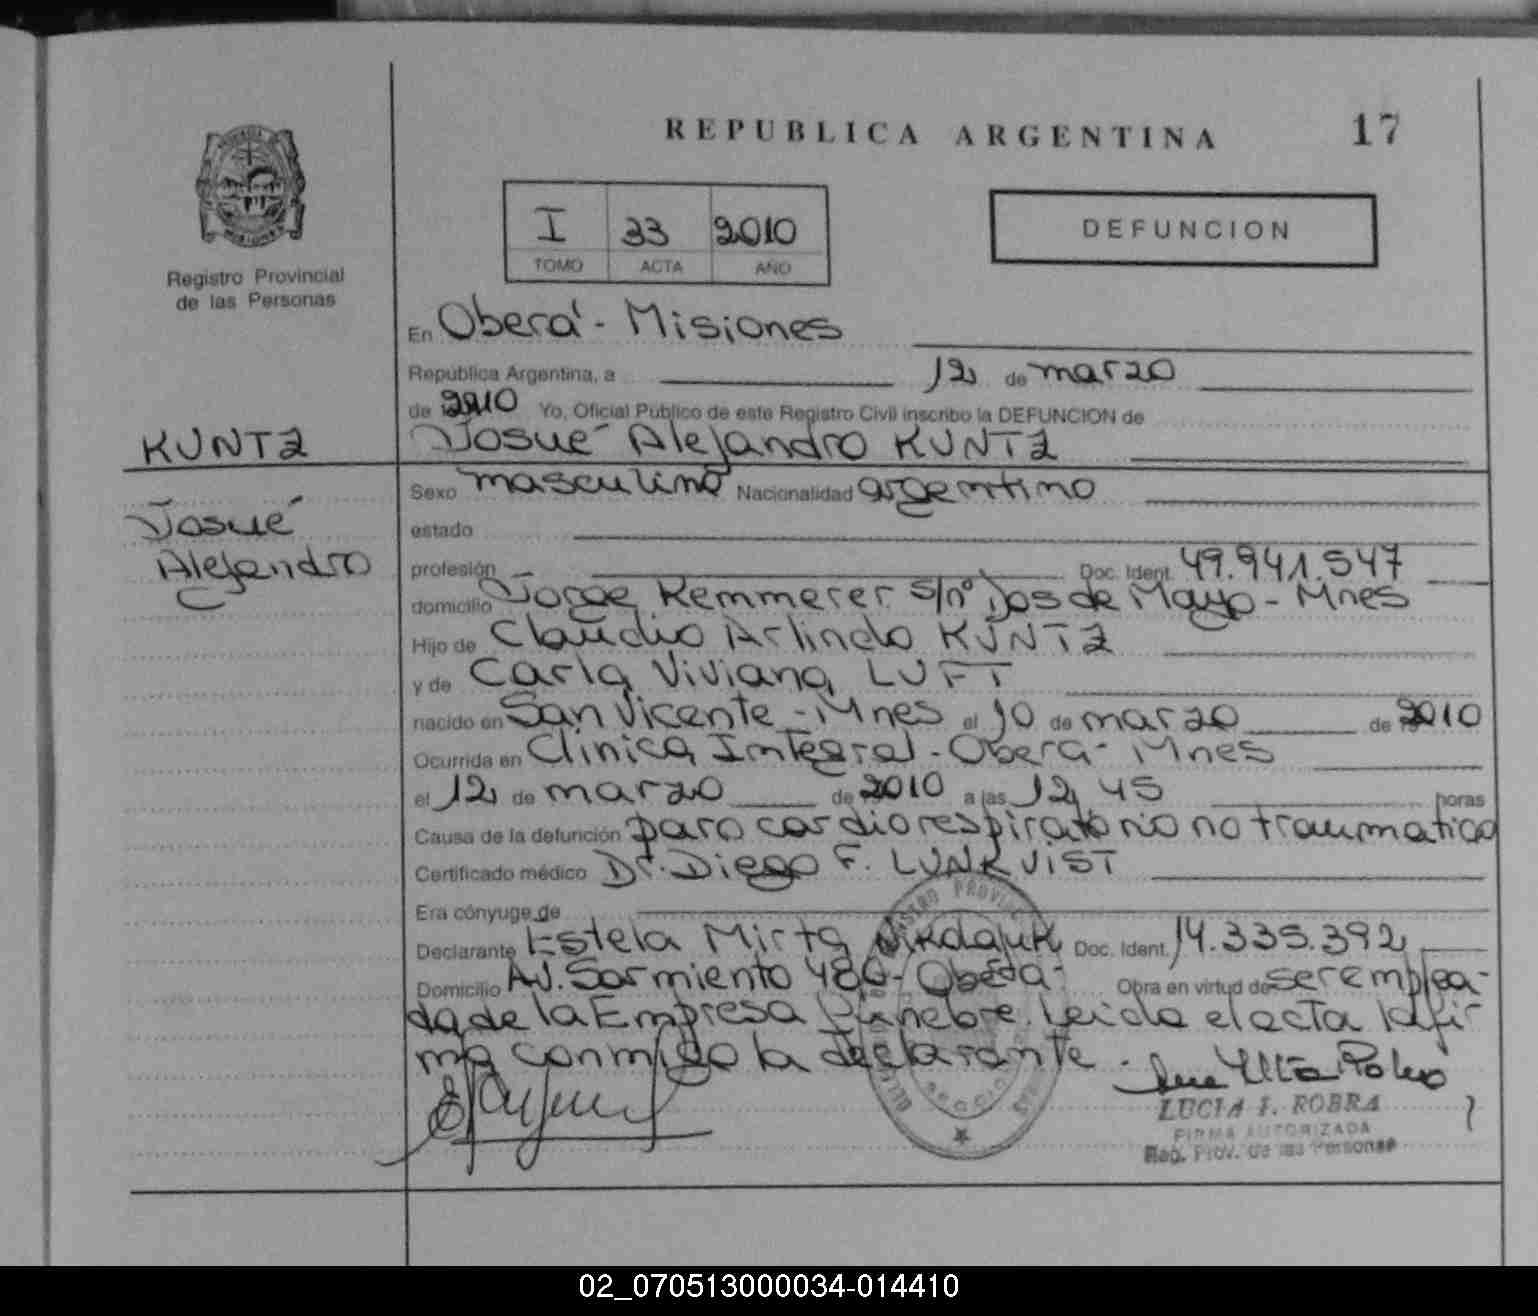 REPUBLICA ARGENTINA
17
Registro Provincial
de las Personas
I 33 2010
TOMO ACTA AÑO
DEFUNCION
En Oberá - Misiones
República Argentina, a 12 de marzo
de 2010 Yo, Oficial Público de este Registro Civil inscribo la DEFUNCION de
KUNTZ
Josué Alejandro KUNTZ
Josué
Alejandro
Sexo masculino Nacionalidad argentino
estado
profesión Doc. Ident. 49.941.547
domicilio Jorge Kemmerer s/nº Dos de Mayo - Mnes
Hijo de Claudio Arlindo KUNTZ
y de Carla Viviana LUFT
nacido en San Vicente - Mnes el 10 de marzo de 2010
Ocurrida en Clinica Integral - Obera - Mnes
el 12 de marzo de 2010 a las 12,45 horas
Causa de la defunción paro cardiorespiratorio no traumatico
Certificado médico Dr. Diego F. LUNKVIST
Era cónyuge de
Declarante Estela Mirta Doc. Ident. 14.335.392
Domicilio Av. Sarmiento 480 - Oberá - Obra en virtud de ser emplea-
da de la Empresa fúnebre. Leida el acta la fir-
ma conmigo la declarante.
LUCIA I. ROBRA
FIRMA AUTORIZADA
Reg. Prov. de las Personas
02_070513000034-014410